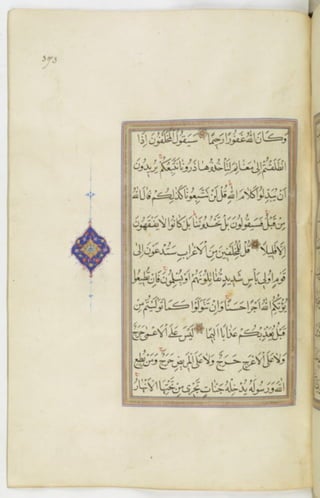 وكان الله غفورا رحيما سيقول المخلفون اذا
انطلقتم الى مغانم لتاخذوها ذرونا نتبعكم يريدون
ان يبدلوا كلام الله قل لن تتبعونا كذلكم قال الله
من قبل فسيقولون بل تحسدوننا بل كانوا لا يفقهون
الا قليلا قل للمخلفين من الاعراب ستدعون الى
قوم اولي باس شديد تقاتلونهم او يسلمون فان تطيعوا
يؤتكم الله اجرا حسنا وان تتولوا كما توليتم من
قبل يعذبكم عذابا اليما ليس على الاعمى حرج
ولا على الاعرج حرج ولا على المريض حرج ومن يطع
الله ورسوله يدخله جنات تجري من تحتها الانهار